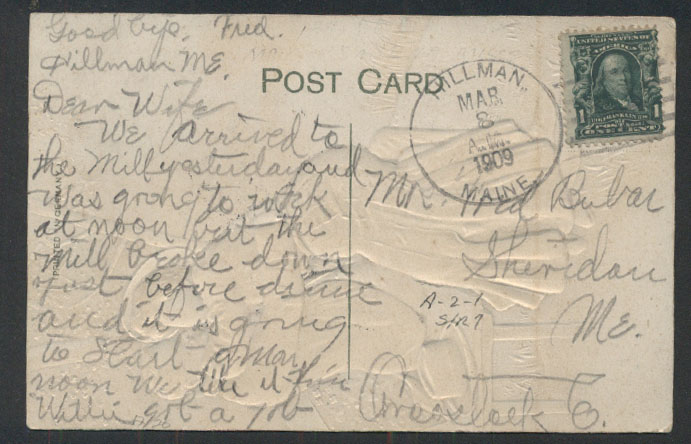 Good bye. Fred.
Hillman ME.
Dear Wife
We arrived to
the Mill yesterday and
was going to work
at noon but the
Mill broke down
just before dinner
and it is going
to Start
noon we like it fine
Willie got a job
PRINTED IN GERMANY
POST CARD
HILLMAN,
MAR
8
A.M.
1909
MAINE
UNITED STATES OF AMERICA
FRANKLIN
1 POSTAGE 1
ONE CENT
Mr. Fred Bubar
Sheridan
ME.
Aroostook Co.
A-2-1